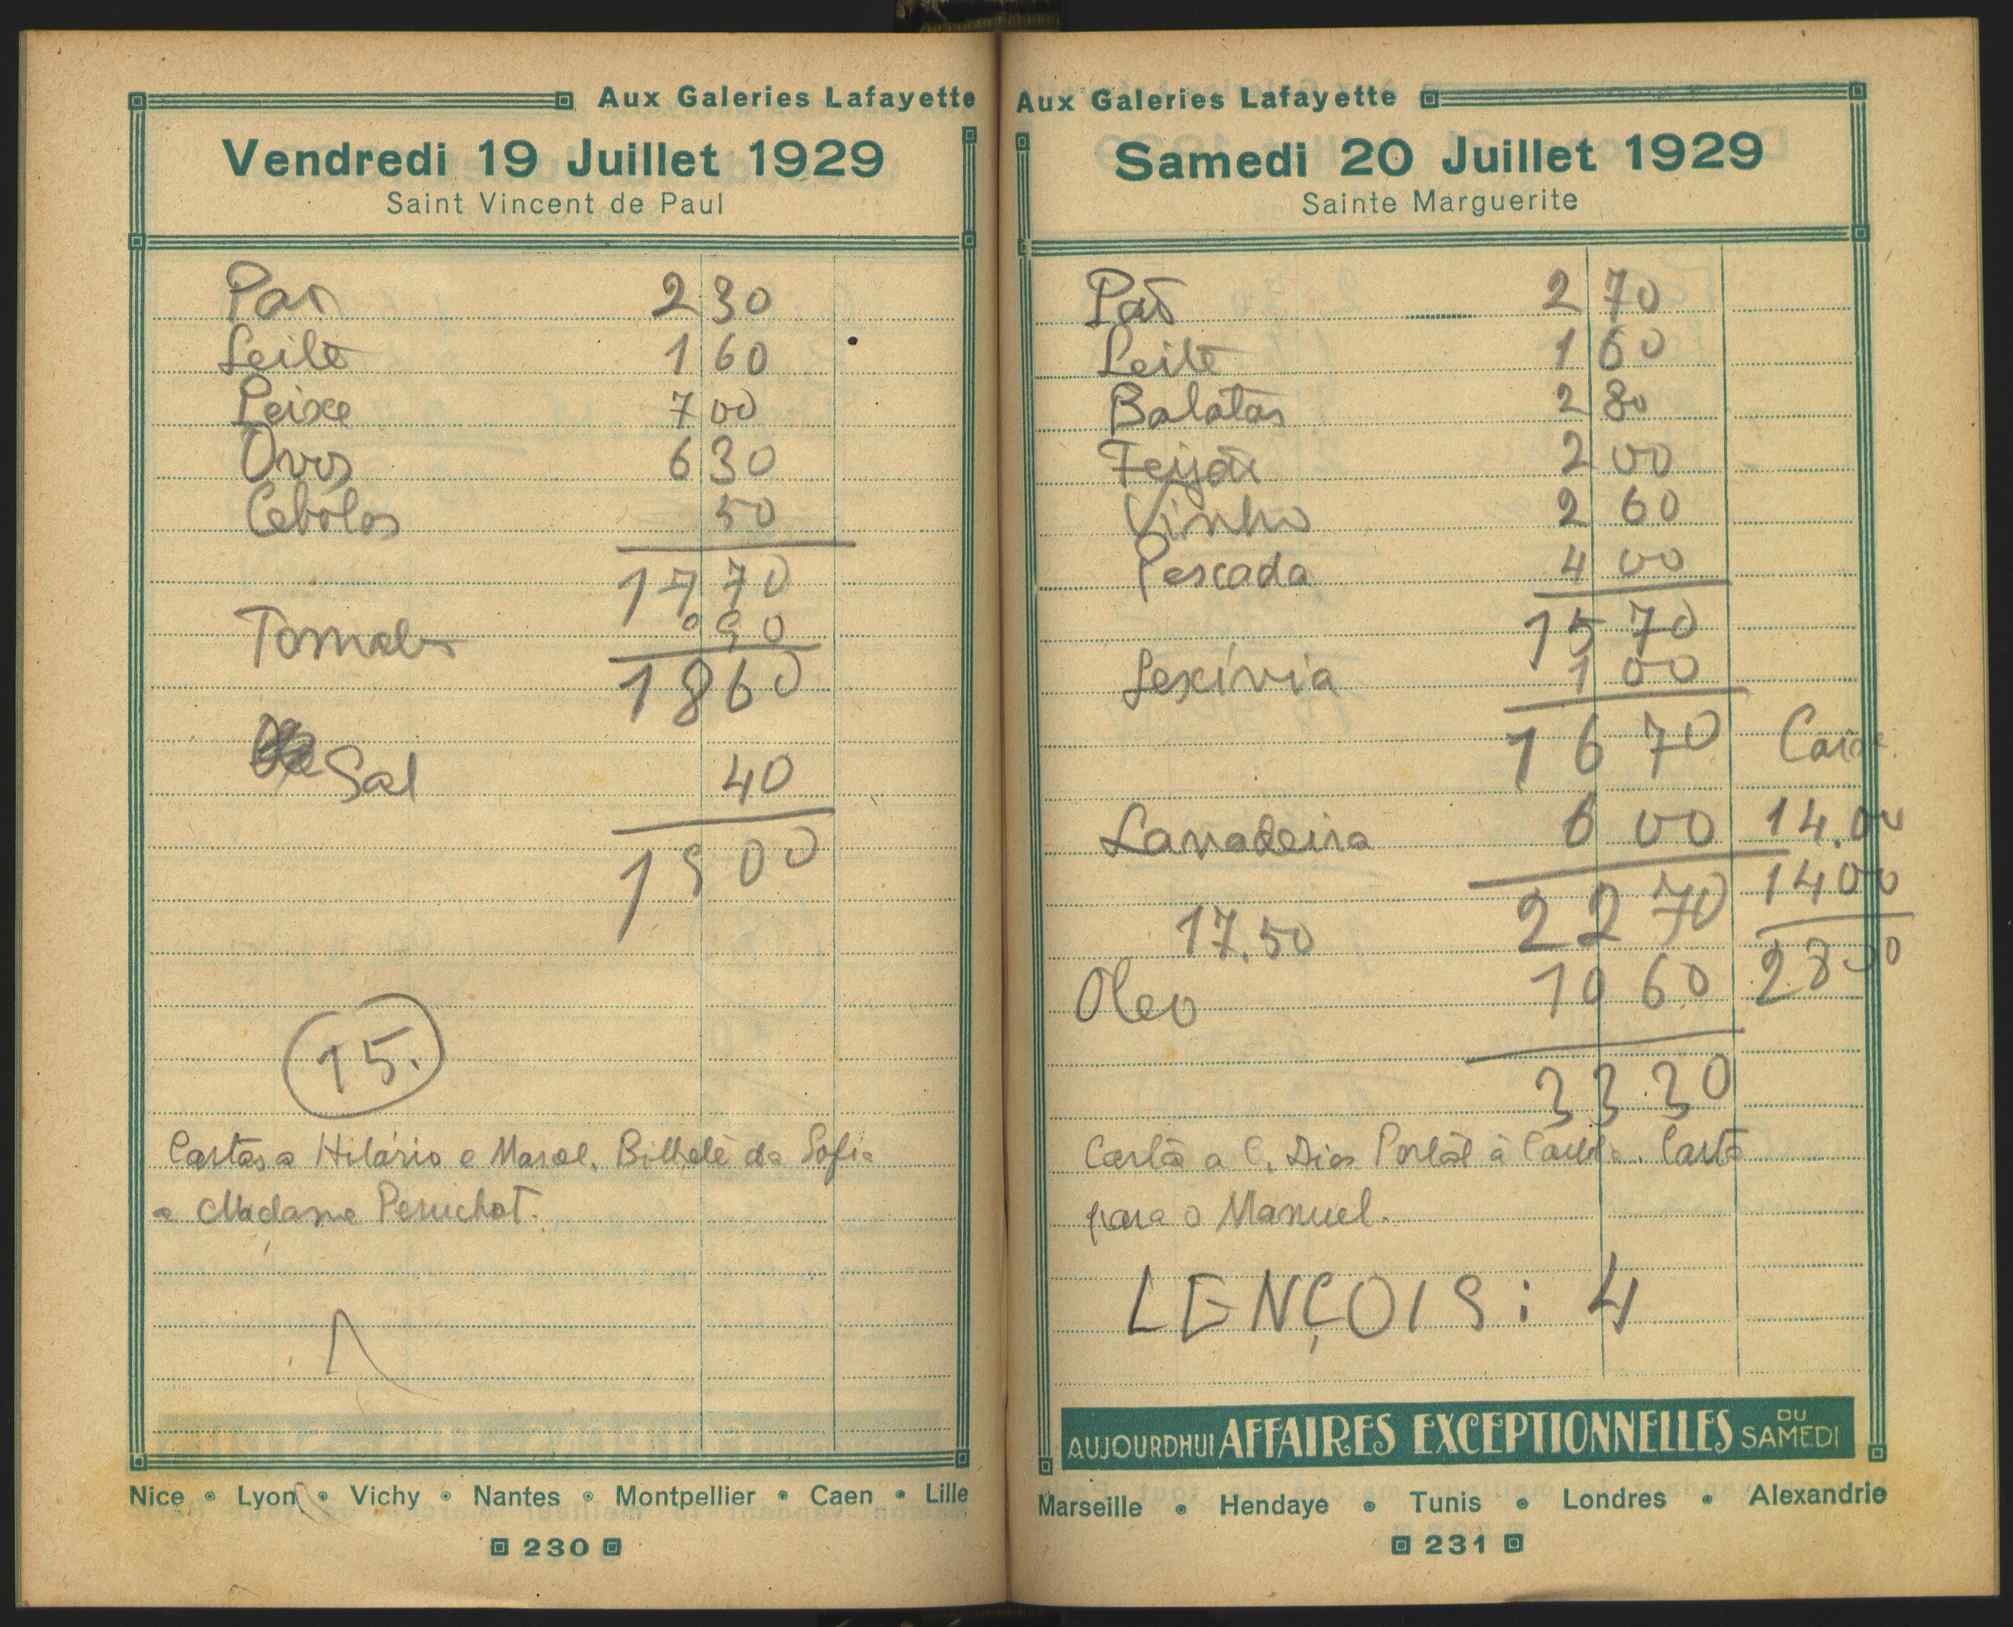 Aux Galeries Lafayette
Vendredi 19 Juillet 1929
Saint Vincent de Paul
Pão 2 30
Leite 1 60
Peixe 7 00
Ovos 6 30
Cebolas 50
17 70
Tomates 90
18 60
Sal 40
19 00
15.
Cartas a Hilário e Marcel. Bilhete da Sofia
a Madame Peruchot.
Nice • Lyon • Vichy • Nantes • Montpellier • Caen • Lille
230
Aux Galeries Lafayette
Samedi 20 Juillet 1929
Sainte Marguerite
Pão 2 70
Leite 1 60
Batatas 2 80
Feijão 2 00
Vinho 2 60
Pescada 4 00
15 70
Lexívia 1 00
16 70
Lavadeira 6 00 14.00
22 70 14 00
17.50 28 00
Oleo 10 60
33.30
Carta a C. Dias Postal à Carta
para o Manuel.
LENÇOIS: 4
AUJOURDHUI AFFAIRES EXCEPTIONNELLES DU SAMEDI
Marseille • Hendaye • Tunis • Londres • Alexandrie
231